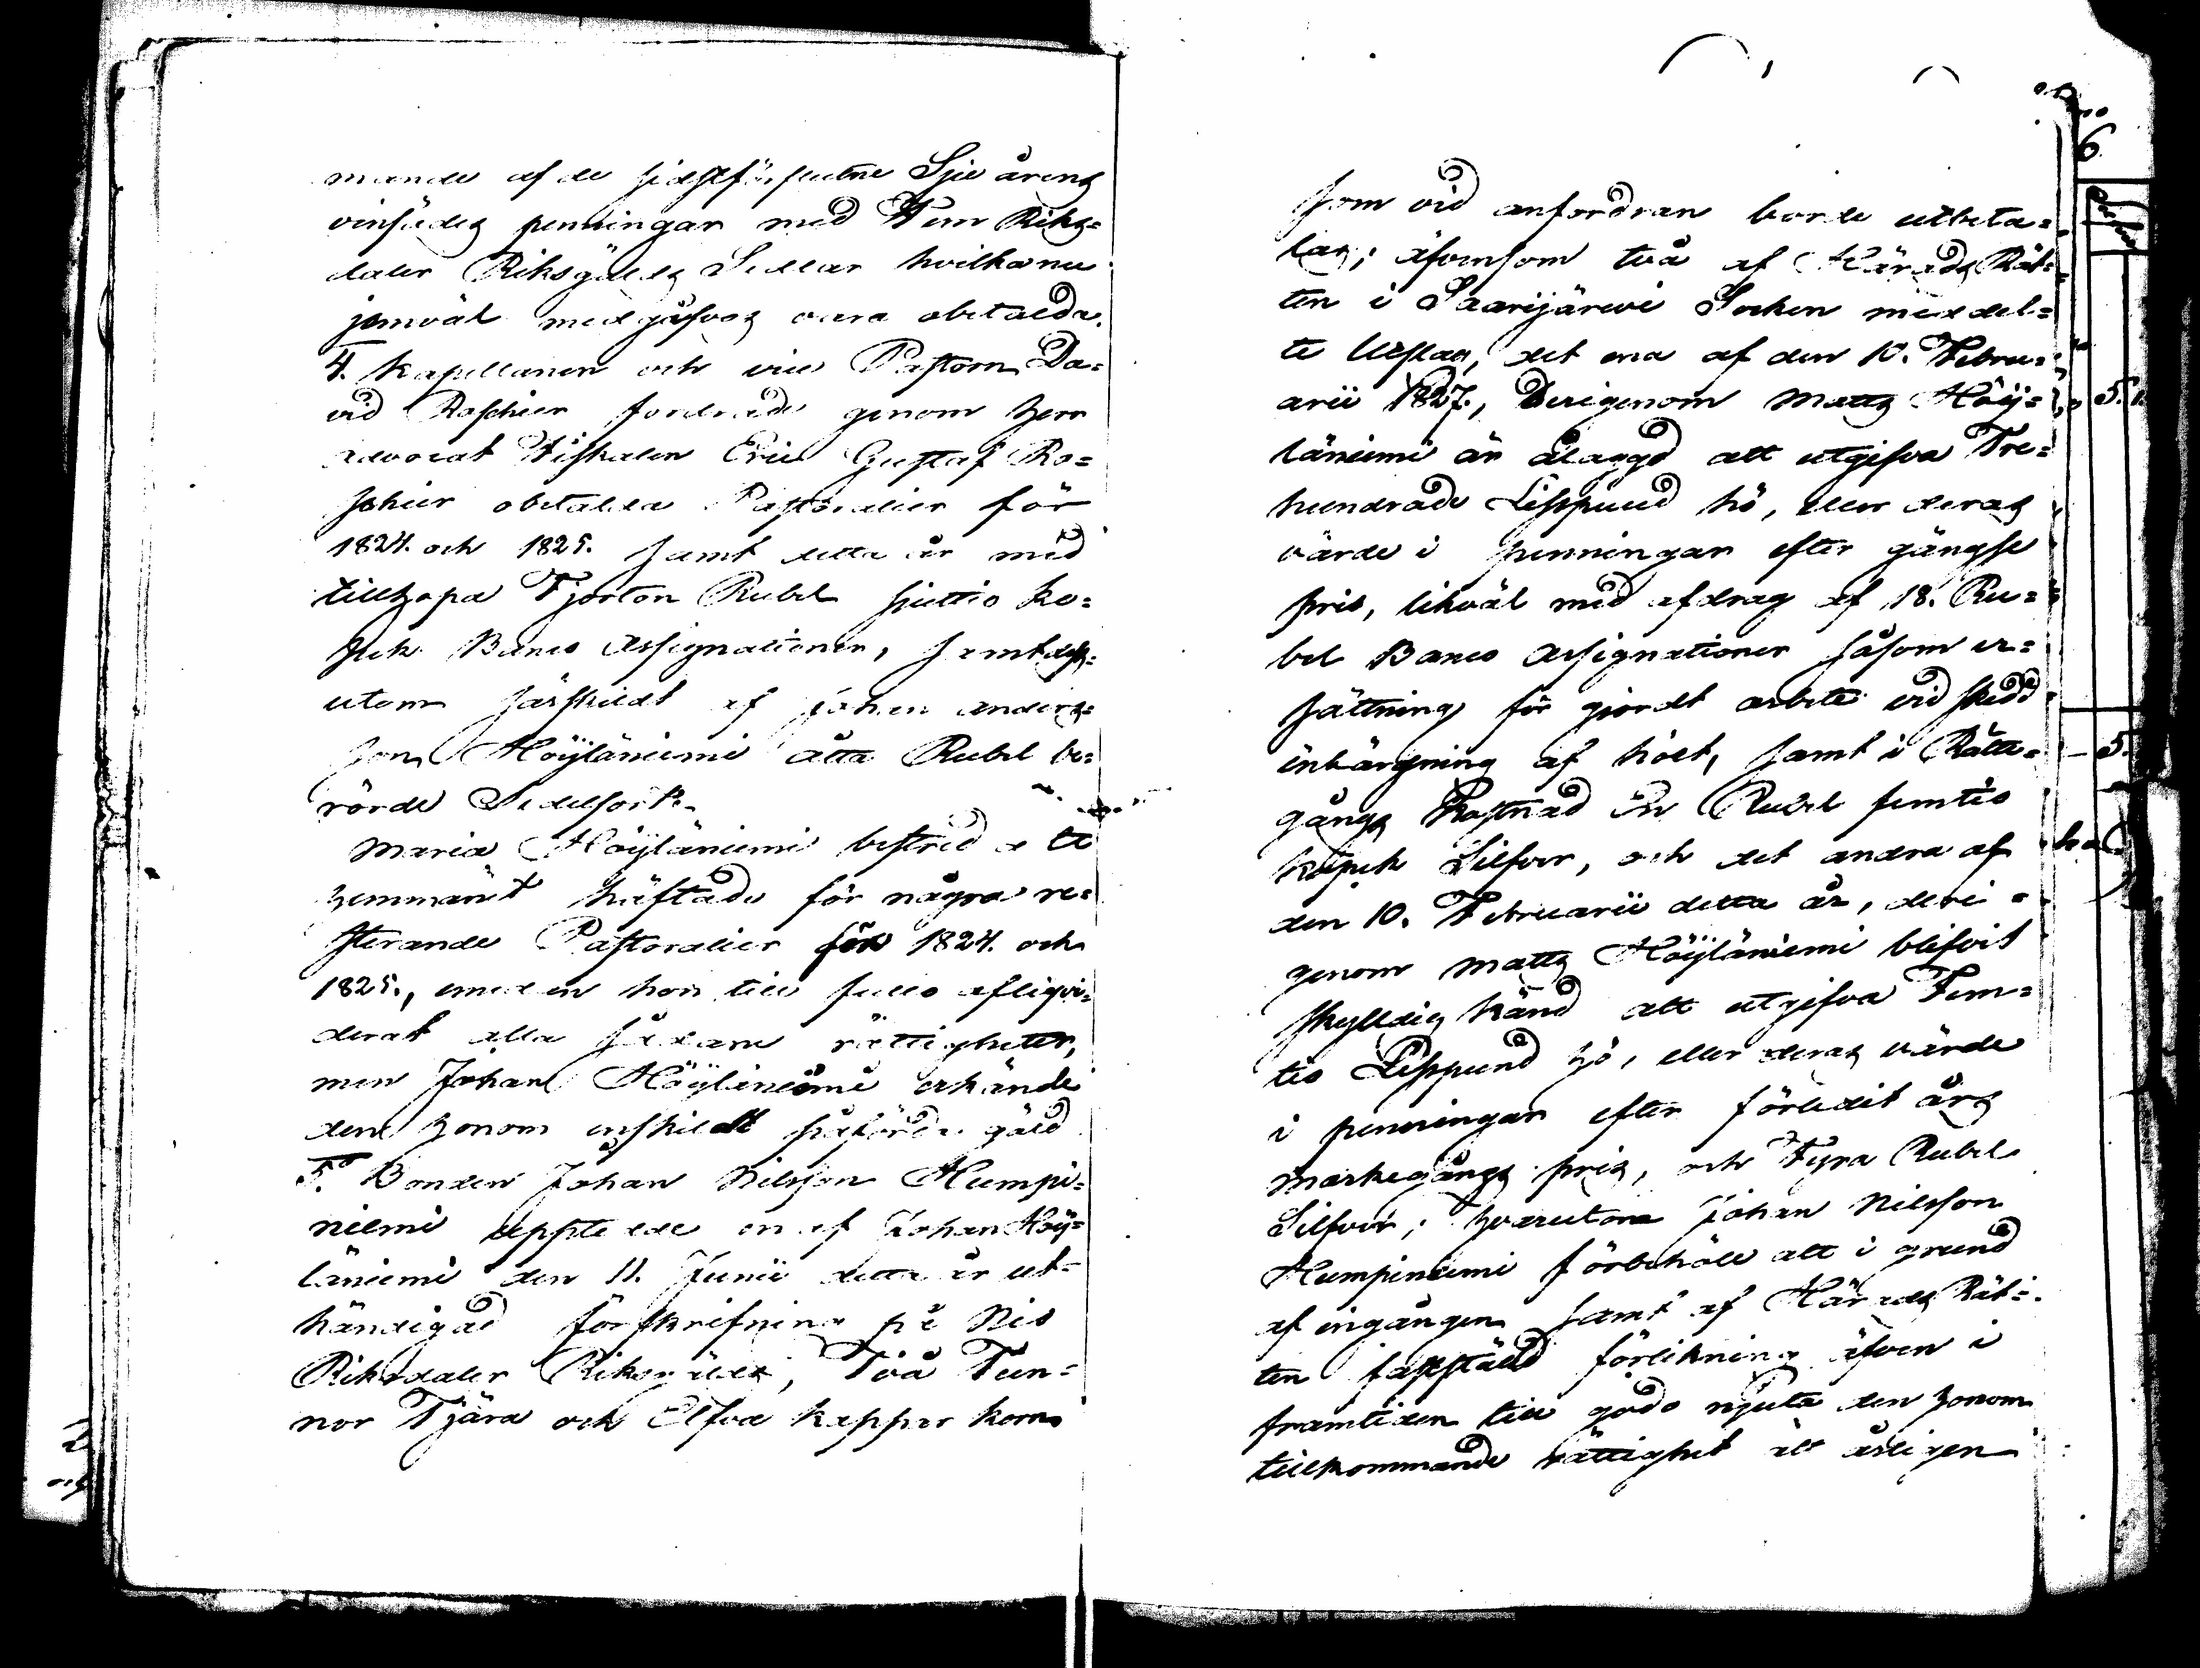 mande af de sidstförflutne Sju årens
vinfädes penningar med Fem Riks=
daler Riksgälds Sedlar hvilka nu
jemväl medgåfvos vara obetalda.
4. Kapellanen och vice Pastorn Da=
vid Roschier fordrade genom Herr
Advocat Fiskalen Eric Gustaf Ro=
schier obetalda Pastoralier för
1824. och 1825. samt detta år med
tillhopa Fjorton Rubel sjuttio Ko=
pek Banco Assignationer, samt dess=
utom särskildt af Johan Anders=
son Höyläniemi åtta Rubel be=
rörde Sedelsort.
Maria Höyläniemi bestred att
hemmanet häftade för några re=
sterande Pastoralier för 1824. och
1825., emedan hon till fullo afliqvi=
derat alla sådane rättigheter,
men Johan Höyläniemi erkände
den honom enskildt påförda gäld
5. Bonden Johan Nilsson Humpi=
niemi uppte en af Johan Höy=
läniemi den 11. Junii detta år ut=
händigad förskrifning på Nio
Riksdaler Riksgälds, Två Tun=
nor Tjära och Elfva kappar korn
som vid anfordran borde utbeta=
las; äfvensom två af Härads Rät=
ten i Saarijärvi Socken meddel=
te Utslag, det ena af den 10. Febru=
arii 1827., Derigenom Matts Höy=
läniemi är ålagd att utgifva Tre=
hundrade Lispund hö, eller deras
värde i penningar efter gängse
pris, likväl med afdrag af 18. Ru=
bel Banco Assignationer såsom er=
sättning för gjordt arbete vid skedd
inbärgning af höet, samt i Rätte=
gångs Kostnad En Rubel femtio
kopek Silfver, och det andra af
den 10. Februarii detta år, deri=
genom Matts Höyläniemi blifvit
skyldig känd att utgifva Fem=
tio Lispund hö, eller deras värde
i penningar efter förledit års
markegångs pris, och Fyra Rubel
Silfver; hvarutom Johan Nilsson
Humpiniemi förbehöll att i grund
af ingången samt af Härads Rät=
ten fastställd förlikning äfven i
framtiden till godo njuta den honom
tillkommande rättighet att årligen